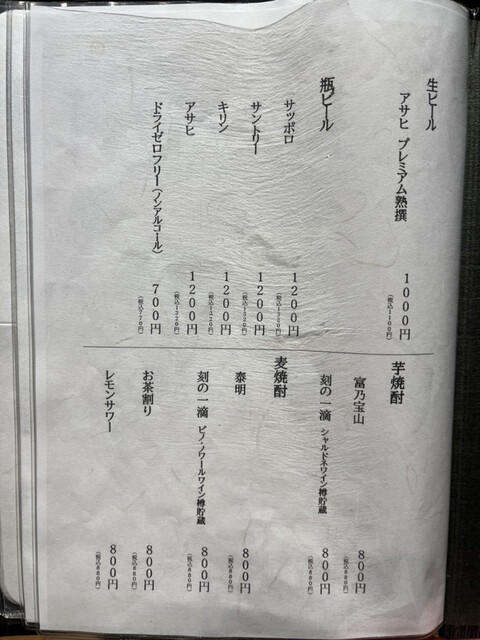 生ビール
アサヒ プレミアム熟撰 1000円
(税込1100円)
瓶ビール
サッポロ 1200円
(税込1320円)
サントリー 1200円
(税込1320円)
キリン 1200円
(税込1320円)
アサヒ 1200円
(税込1320円)
ドライゼロフリー(ノンアルコール) 700円
(税込770円)
芋焼酎
富乃宝山 800円
(税込880円)
刻の一滴 シャルドネワイン樽貯蔵 800円
(税込880円)
麦焼酎
泰明 800円
(税込880円)
刻の一滴 ピノ・ノワールワイン樽貯蔵 800円
(税込880円)
お茶割り 800円
(税込880円)
レモンサワー 800円
(税込880円)